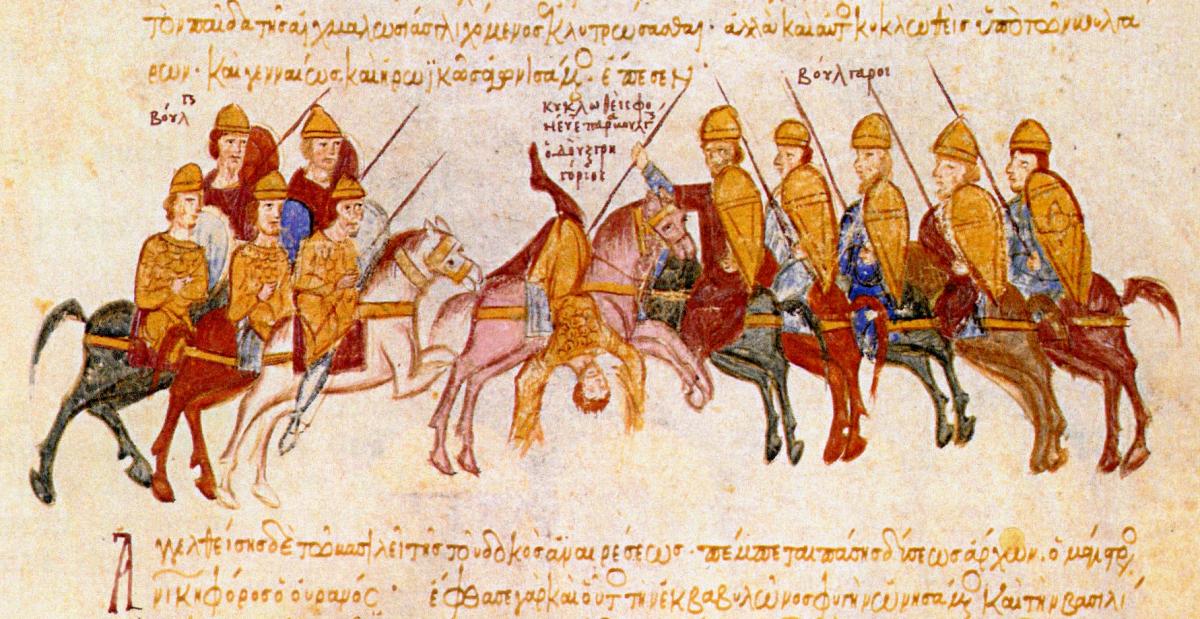 τὸν παῖδα τῆς αἰχμαλωσίας γλιχόμενος λυτρώσασθαι· ἀλλὰ καὶ αὐτὸς κυκλωθεὶς ὑπὸ τῶν βουλγά
ρων· καὶ γενναίως καὶ ἡρωϊκῶς ἀγωνισάμενος· ἔπεσεν
βούλγ
κυκλωθεὶς ἐφο
νεύθη παρὰ βουλγ
ὁ δοὺξ γρη
γόριος
βούλγαροι
Ἀγγελθείσης δὲ τῶ βασιλεῖ τῆς τοῦ δουκὸς ἀναιρέσεως· πέμπεται πάσης δύσεως ἄρχων, ὁ μάγιστρος
νικηφόρος ὁ οὐρανός· ἔφθασε γὰρ καὶ οὗτος τὴν ἐκ βαβυλῶνος φυγὴν ὠνησάμενος καὶ τὴν βασιλί